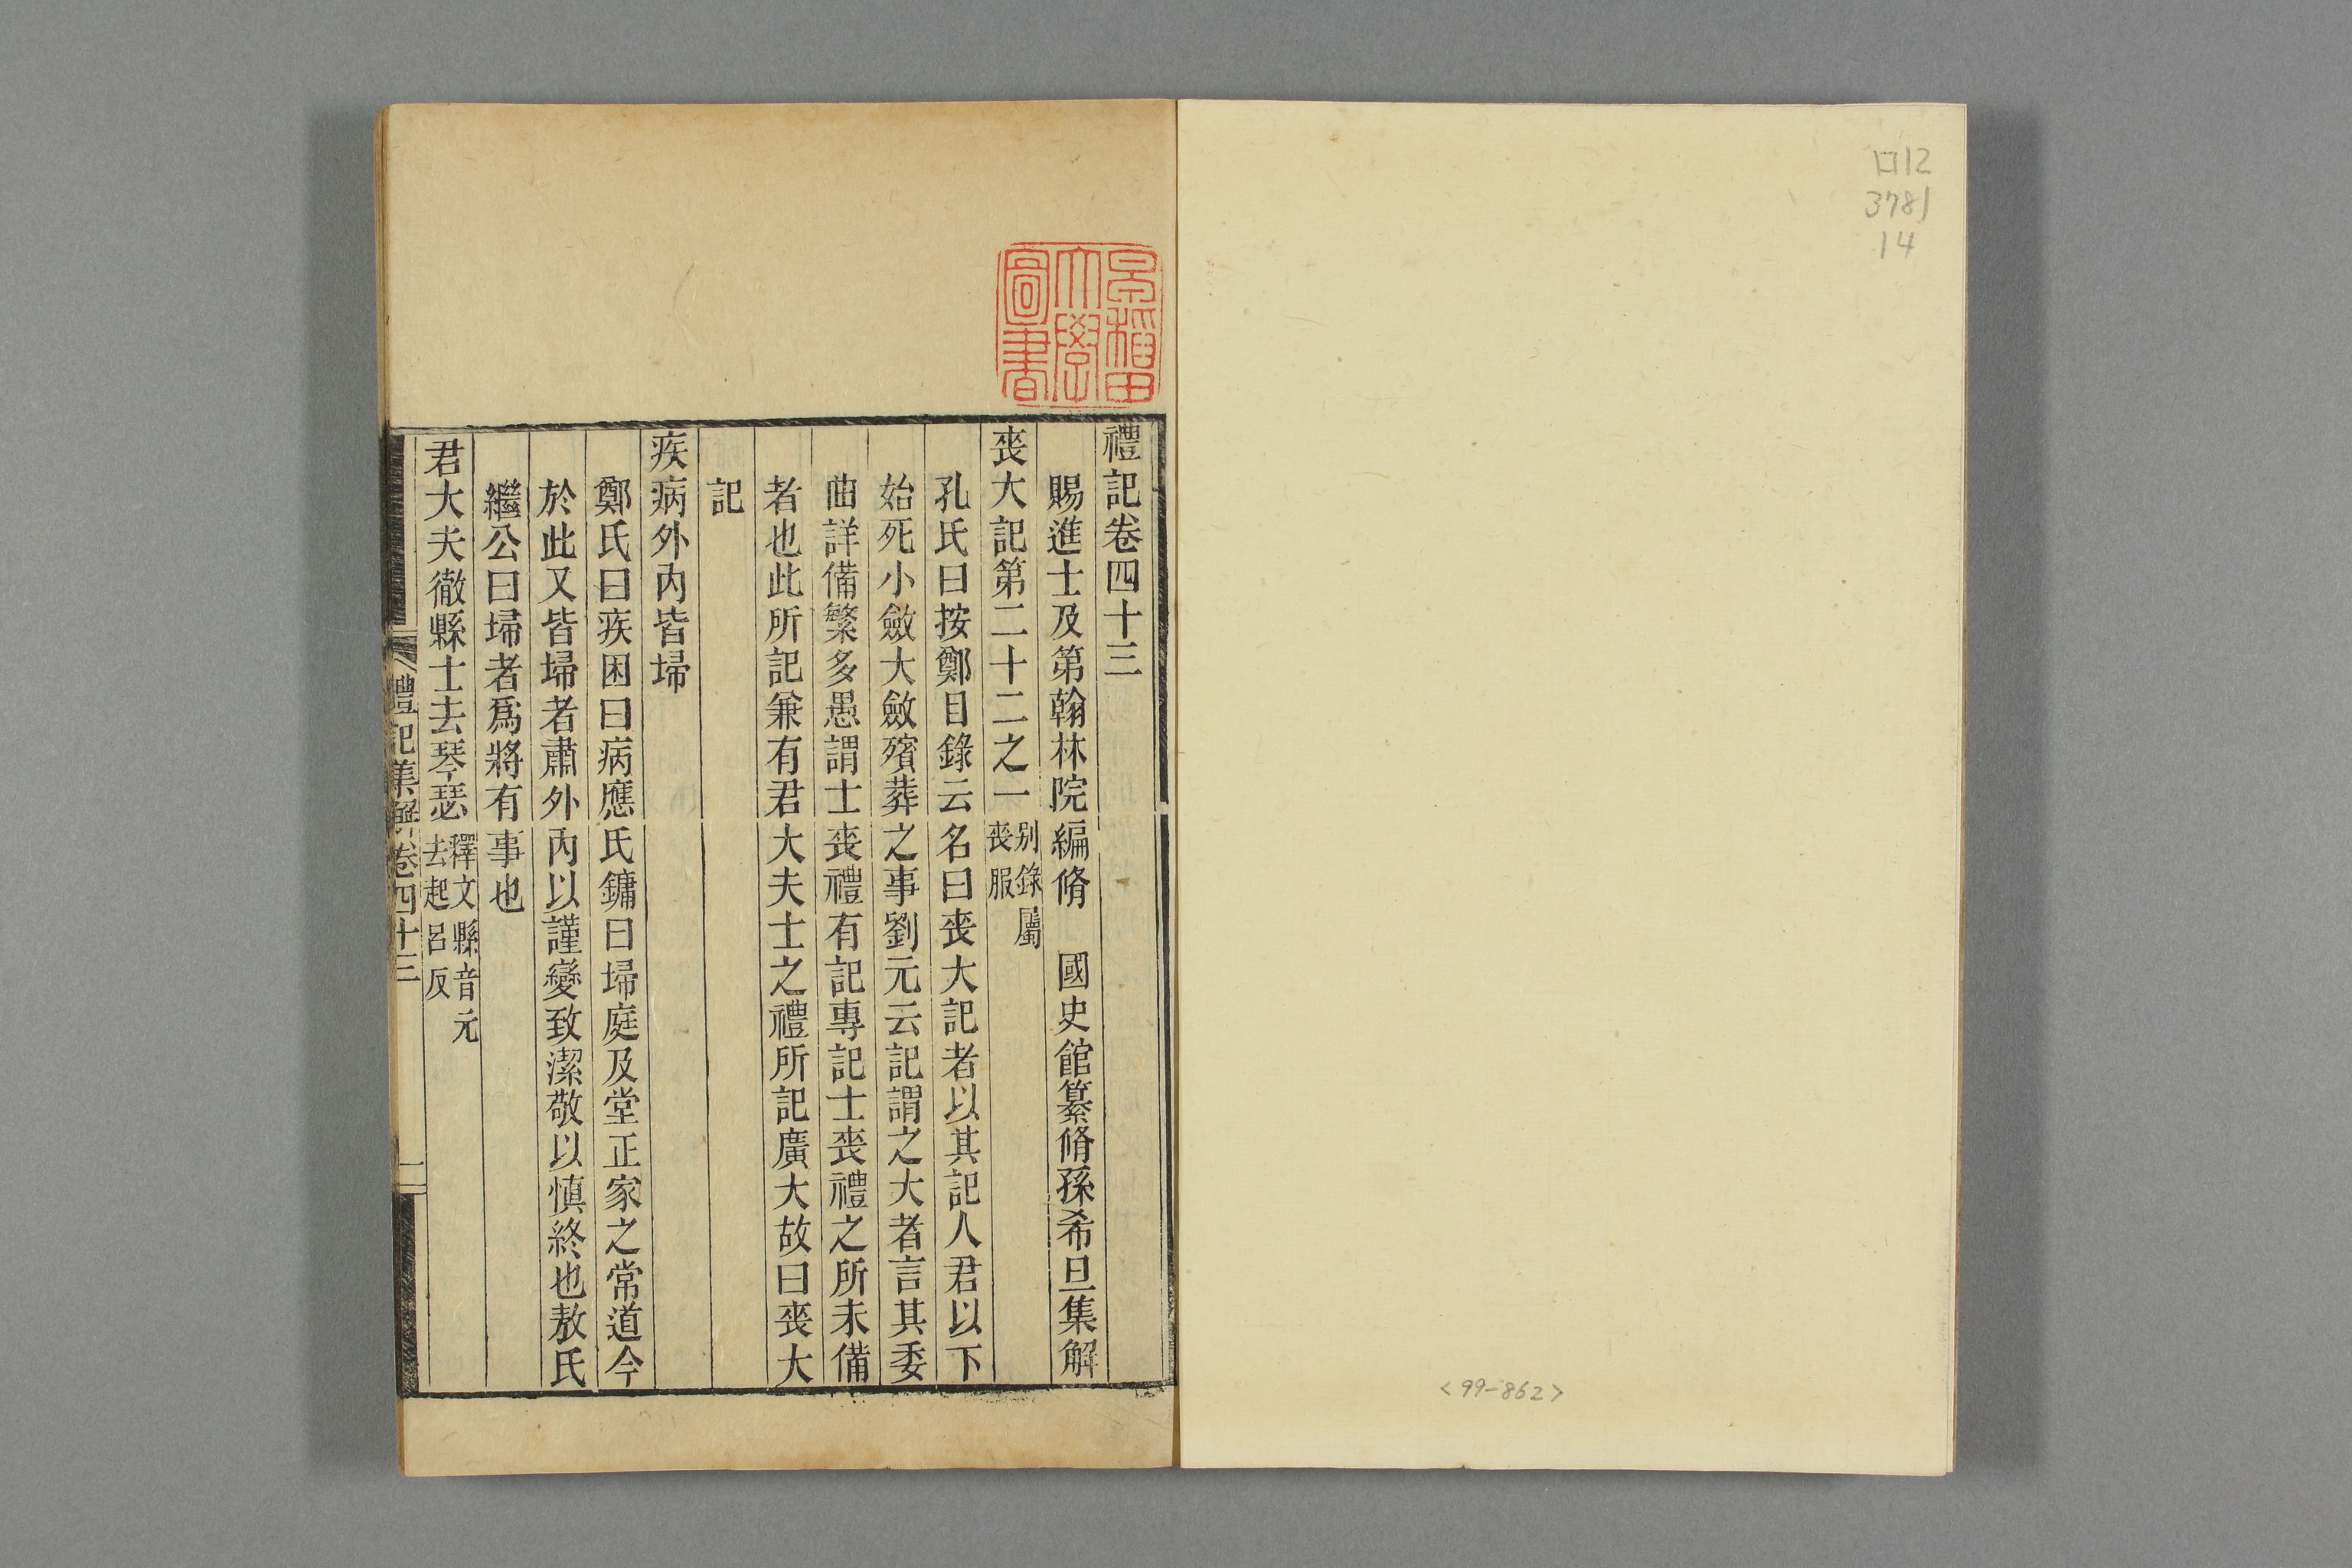 口12
3781
14
<99-862>
早稲田
大學
圖書
禮記卷四十三
賜進士及第翰林院編脩 國史館纂脩孫希旦集解
喪大記第二十二之一 别錄屬喪服
孔氏曰按鄭目錄云名曰喪大記者以其記人君以下
始死小斂大斂殯葬之事劉元云記謂之大者言其委
曲詳備繁多愚謂士喪禮有記專記士喪禮之所未備
者也此所記兼有君大夫士之禮所記廣大故曰喪大
記
疾病外內皆埽
鄭氏曰疾困曰病應氏鏞曰埽庭及堂正家之常道今
於此又皆埽者肅外內以謹變致潔敬以慎終也敖氏
繼公曰埽者爲將有事也
君大夫徹縣士去琴瑟 釋文縣音元去起呂反
禮記集解卷四十三 一